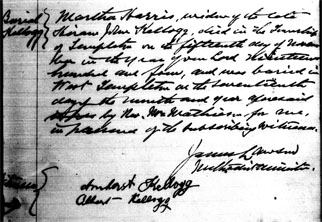 Burial
Kellogg
Martha Harris, widow of the late
Hiram John Kellogg, died in the Township
of Templeton on the fifteenth day of Novem
ber in the year of our Lord Nineteen
hundred and four, and was buried in
West Templeton on the seventeenth
day of the month and year aforesaid
by Rev. Mr. Mathieson for me,
in presence of the subscribing witnesses.
James Lawson
Methodist Minister.
Witnesses
Amherst Kellogg
Albert Kellogg